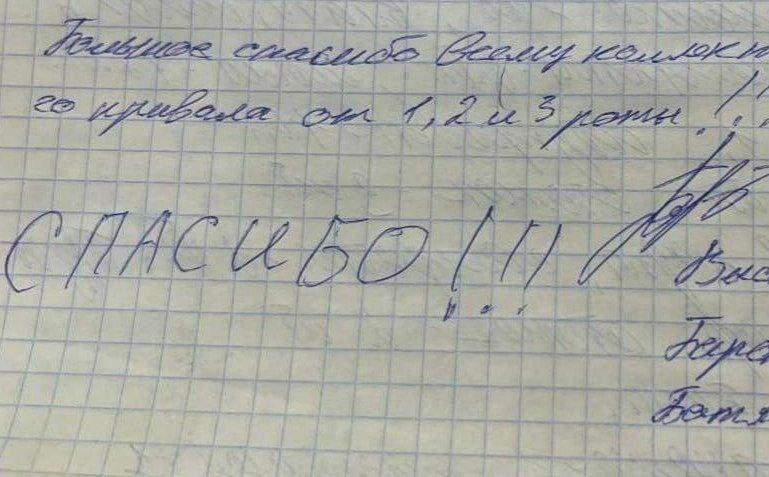 Большое спасибо всему коллект
го привала от 1, 2 и 3 роты!!!
СПАСИБО!!!
Выс
Баре
Батя